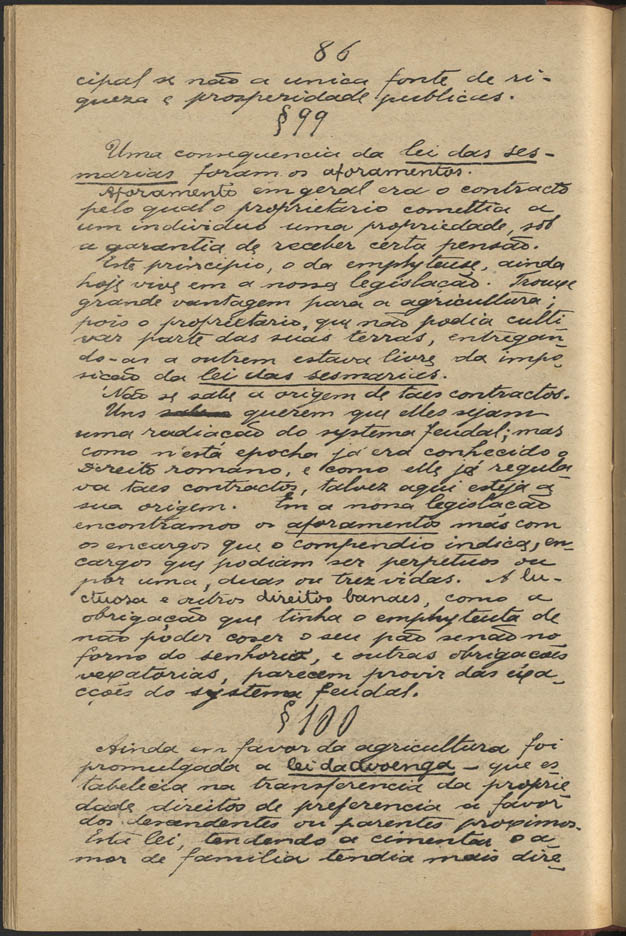 86
cipal se não a unica fonte de ri-
queza e prosperidade publicas.
§ 99
Uma consequencia da lei das ses-
marias foram os aforamentos.
Aforamento em geral era o contracto
pelo qual o proprietario comettia a
um individuo uma propriedade, sob
a garantia de receber certa pensão.
Este principio, o da emphyteuse, ainda
hoje vive em a nossa legislação. Trouxe
grande vantagem para a agricultura;
pois o proprietario, que não podia culti
var parte das suas terras, entregan-
do-as a outrem estava livre da impo-
sição da lei das sesmarias.
Não se sabe a origem de taes contractos.
Uns querem que elles sejam
uma radiação do systema feudal; mas
como n'esta epocha já era conhecido o
Direito romano, e como elle já regula-
va taes contractos, talvez aqui esteja a
sua origem. Em a nossa legislação
encontramos os aforamentos mas com
os encargos que o compendio indica, en-
cargos que podiam ser perpetuos ou
por uma, duas ou trez vidas. A lu-
ctuosa e outros direitos banaes, como a
obrigação que tinha o emphyteuta de
não poder coser o seu pão senão no
forno do senhorio, e outras obrigações
vexatorias, parecem provir das exa-
cções do systema feudal.
§ 100
Ainda em favor da agricultura foi
promulgada a lei da avoenga - que es
tabelecia na transferencia da proprie-
dade direitos de preferencia a favor
dos descendentes ou parentes proximos.
Esta lei, tendendo a cimentar o a-
mor de familia tendia mais dire-